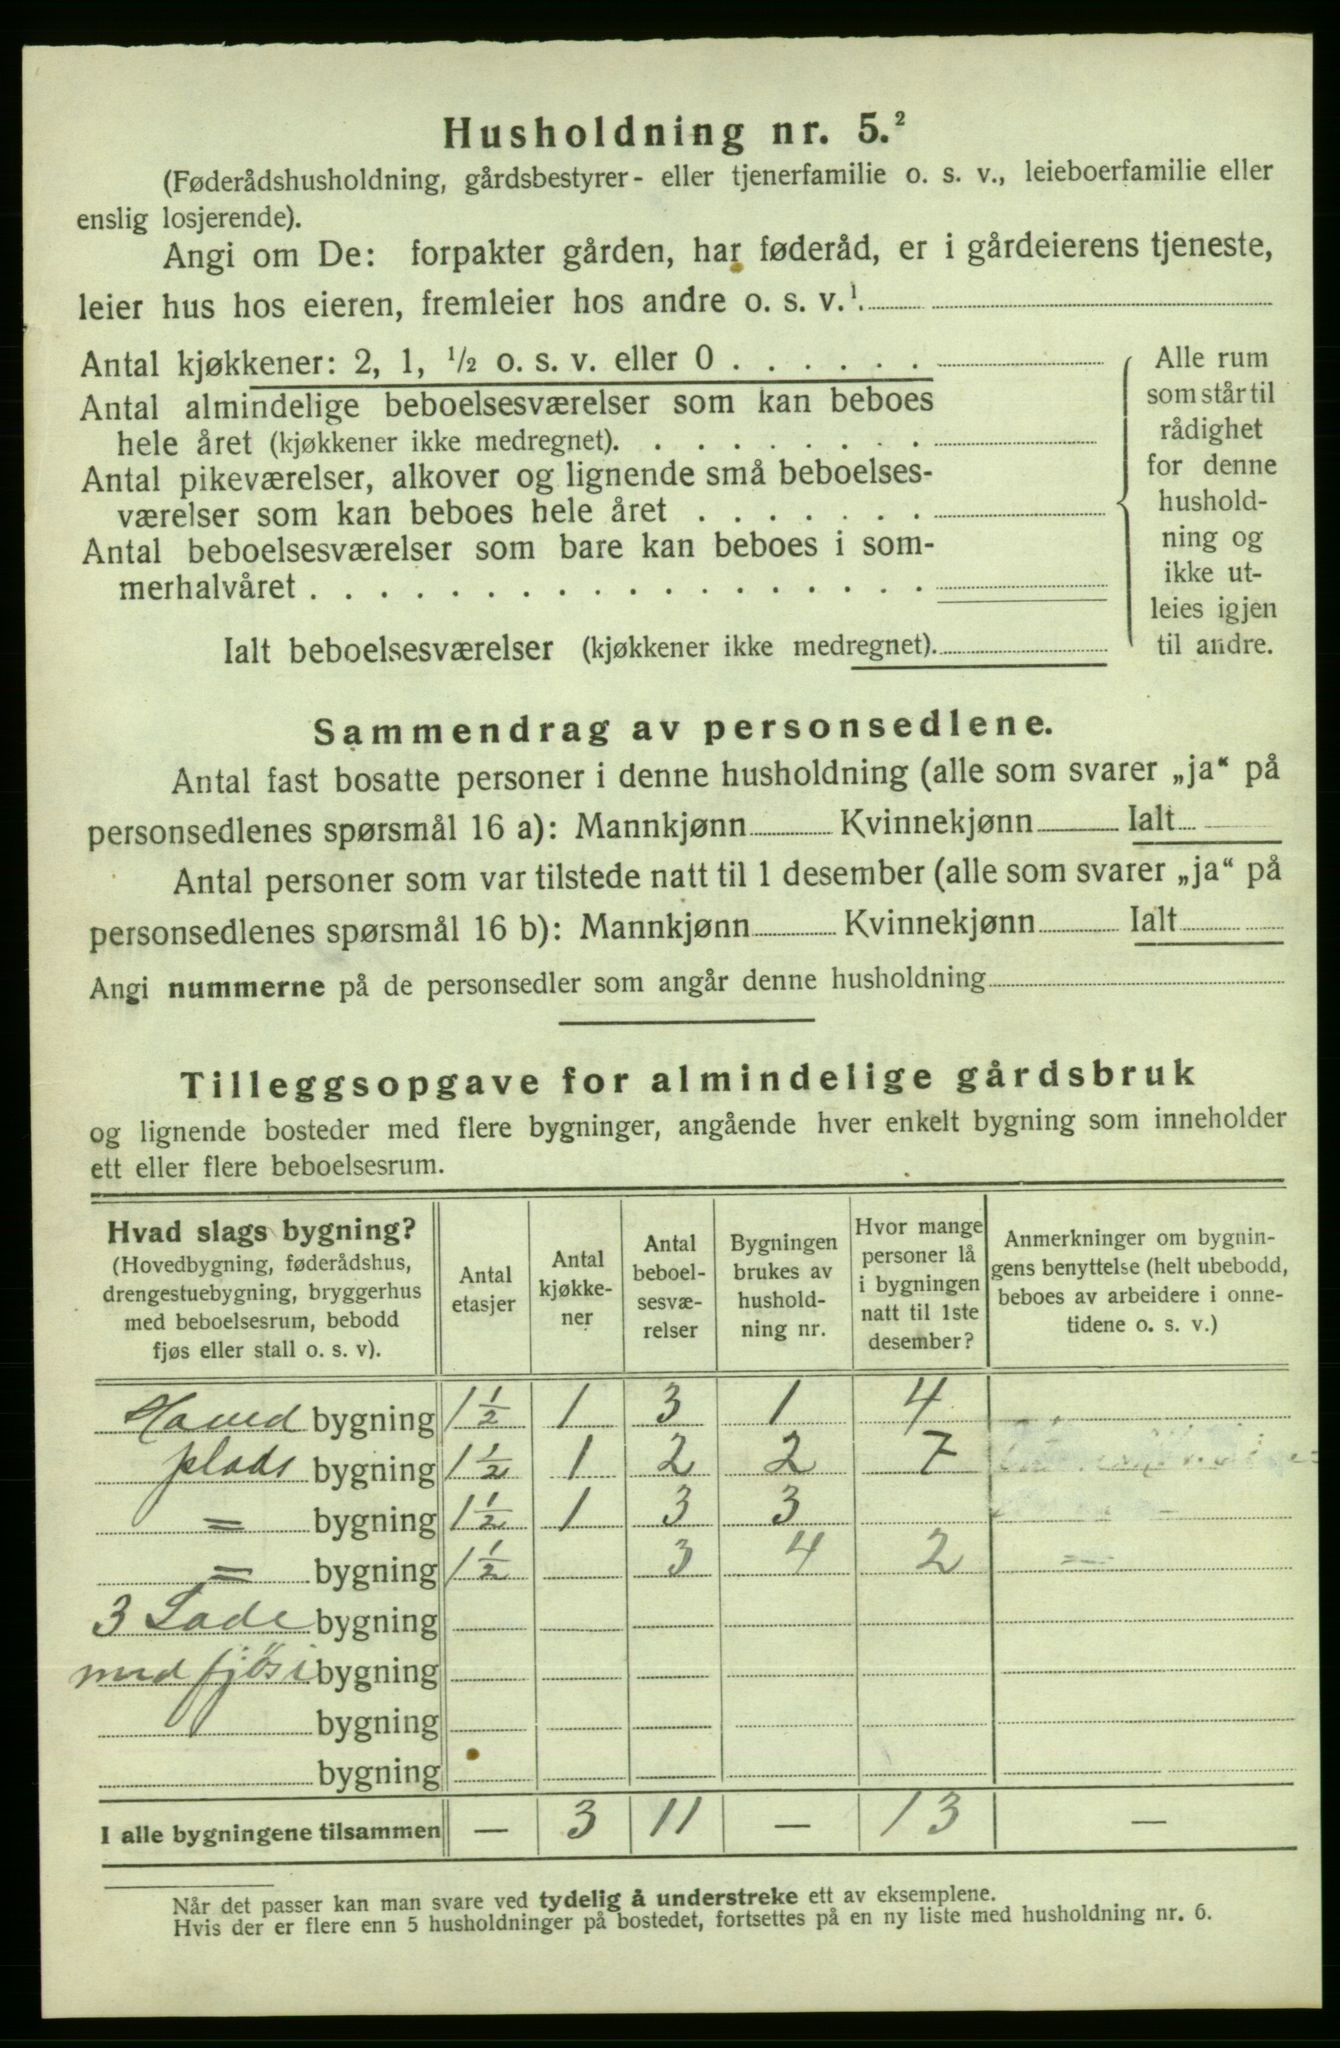 Husholdning nr. 5.²
(Føderådshusholdning, gårdsbestyrer- eller tjenerfamilie o. s. v., leieboerfamilie eller
enslig losjerende).
Angi om De: forpakter gården, har føderåd, er i gårdeierens tjeneste,
leier hus hos eieren, fremleier hos andre o. s. v.¹.
Antal kjøkkener: 2, 1, ½ o. s. v. eller 0 . . . . . .
Antal almindelige beboelsesværelser som kan beboes
hele året (kjøkkener ikke medregnet). . . . . . . . .
Antal pikeværelser, alkover og lignende små beboelses-
værelser som kan beboes hele året . . . . . . .
Antal beboelsesværelser som bare kan beboes i som-
merhalvåret . . . . . . . . . . . . . . . .
Ialt beboelsesværelser (kjøkkener ikke medregnet).
Alle rum
som står til
rådighet
for denne
hushold-
ning og
ikke ut-
leies igjen
til andre.
Sammendrag av personsedlene.
Antal fast bosatte personer i denne husholdning (alle som svarer „ja“ på
personsedlenes spørsmål 16 a): Mannkjønn Kvinnekjønn Ialt
Antal personer som var tilstede natt til 1 desember (alle som svarer „ja“ på
personsedlenes spørsmål 16 b): Mannkjønn Kvinnekjønn Ialt
Angi nummerne på de personsedler som angår denne husholdning
Tilleggsopgave for almindelige gårdsbruk
og lignende bosteder med flere bygninger, angående hver enkelt bygning som inneholder
ett eller flere beboelsesrum.
Hvad slags bygning?
(Hovedbygning, føderådshus,
drengestuebygning, bryggerhus
med beboelsesrum, bebodd
fjøs eller stall o. s. v).
Antal
etasjer
Antal
kjøkke-
ner
Antal
beboel-
sesvæ-
relser
Bygningen
brukes av
hushold-
ning nr.
Hvor mange
personer lå
i bygningen
natt til 1ste
desember?
Anmerkninger om bygnin-
gens benyttelse (helt ubebodd,
beboes av arbeidere i onne-
tidene o. s. v.)
Haved bygning 1½ 1 3 1 4
plads bygning 1½ 1 2 2 7
= bygning 1½ 1 3 3
= bygning 1½ 3 4 2 =
3 Lade bygning
med fjøs i bygning
bygning
bygning
I alle bygningene tilsammen — 3 11 — 13 —
Når det passer kan man svare ved tydelig å understreke ett av eksemplene.
Hvis der er flere enn 5 husholdninger på bostedet, fortsettes på en ny liste med husholdning nr. 6.